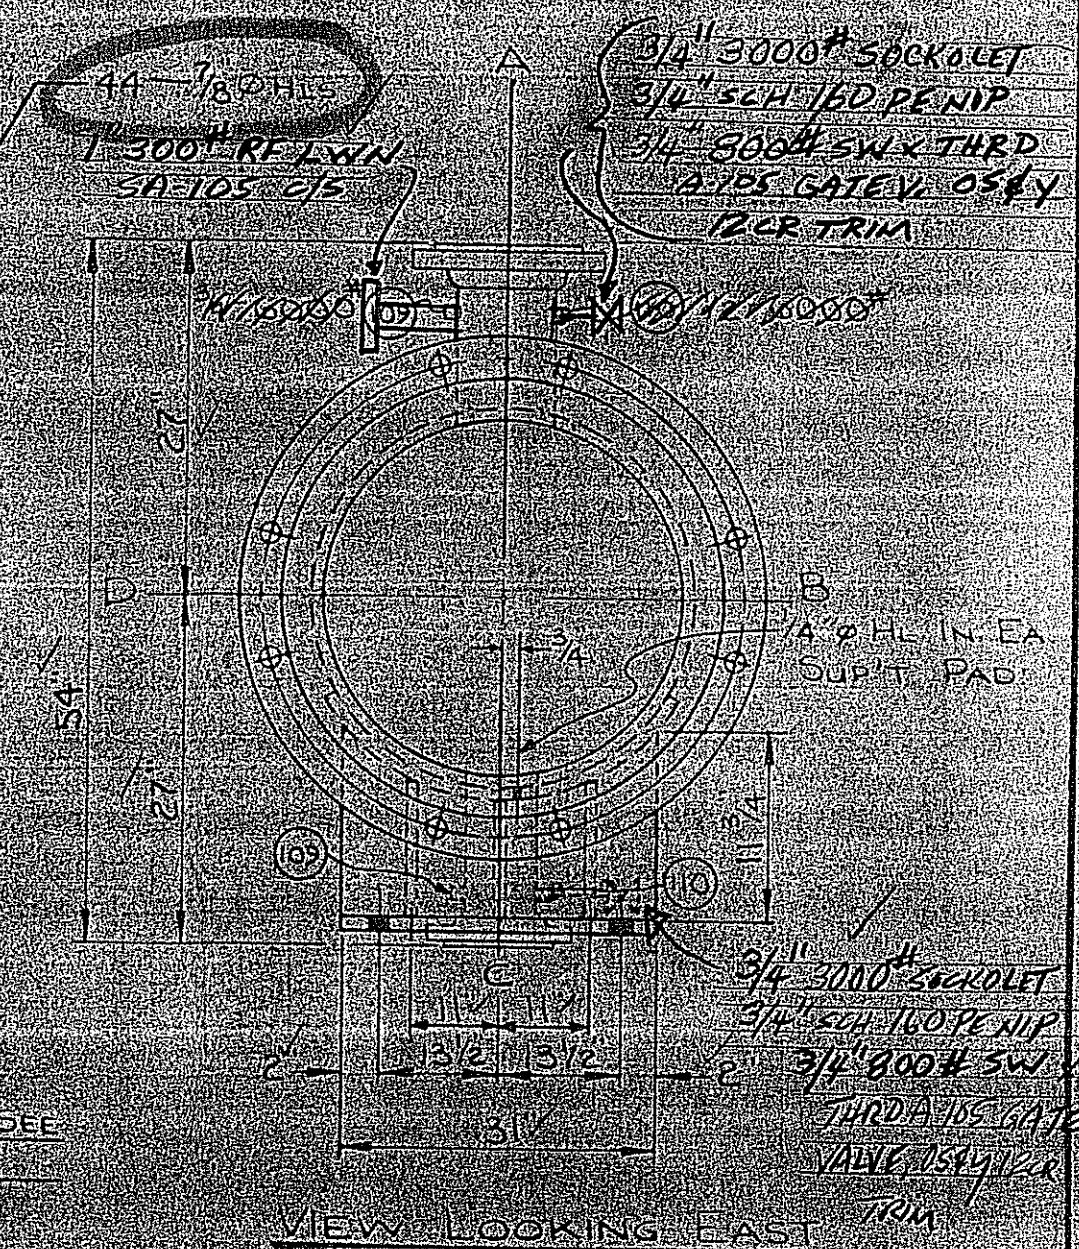 44 - 7/8 Ø HLS
1" 300# RF LWN
SA-105 C/S
A
3/4" 3000# SOCKOLET
3/4" SCH 160 PE NIP
3/4" 800# SW X THRD
A-105 GATE V. OS&Y
12 CR TRIM
6000#
109
6000#
27"
54"
27"
D
B
3/4
1/4" Ø HL IN. EA.
SUP'T PAD
11 3/4"
109
110
C
11" 11"
13 1/2 13 1/2
2" 2"
31"
3/4" 3000# SOCKOLET
3/4" SCH 160 PE NIP
3/4" 800# SW X
THRD. A 105 GATE
VALVE, OS&Y 12CR
TRIM
DEE
VIEW LOOKING EAST